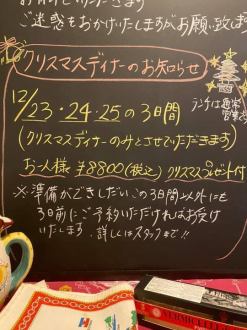 ご迷惑をおかけいたしますがお願い致しま
クリスマスディナーのお知らせ
12/23・24・25の3日間
ランチは通常
営業
(クリスマスディナーのみとさせていただきます)
お一人様 ¥8800(税込) クリスマスプレゼント付
※準備ができしだいこの3日間以外にも
3日前にご予約いただければお受け
いたします。詳しくはスタッフまで!!
VERMICELLI